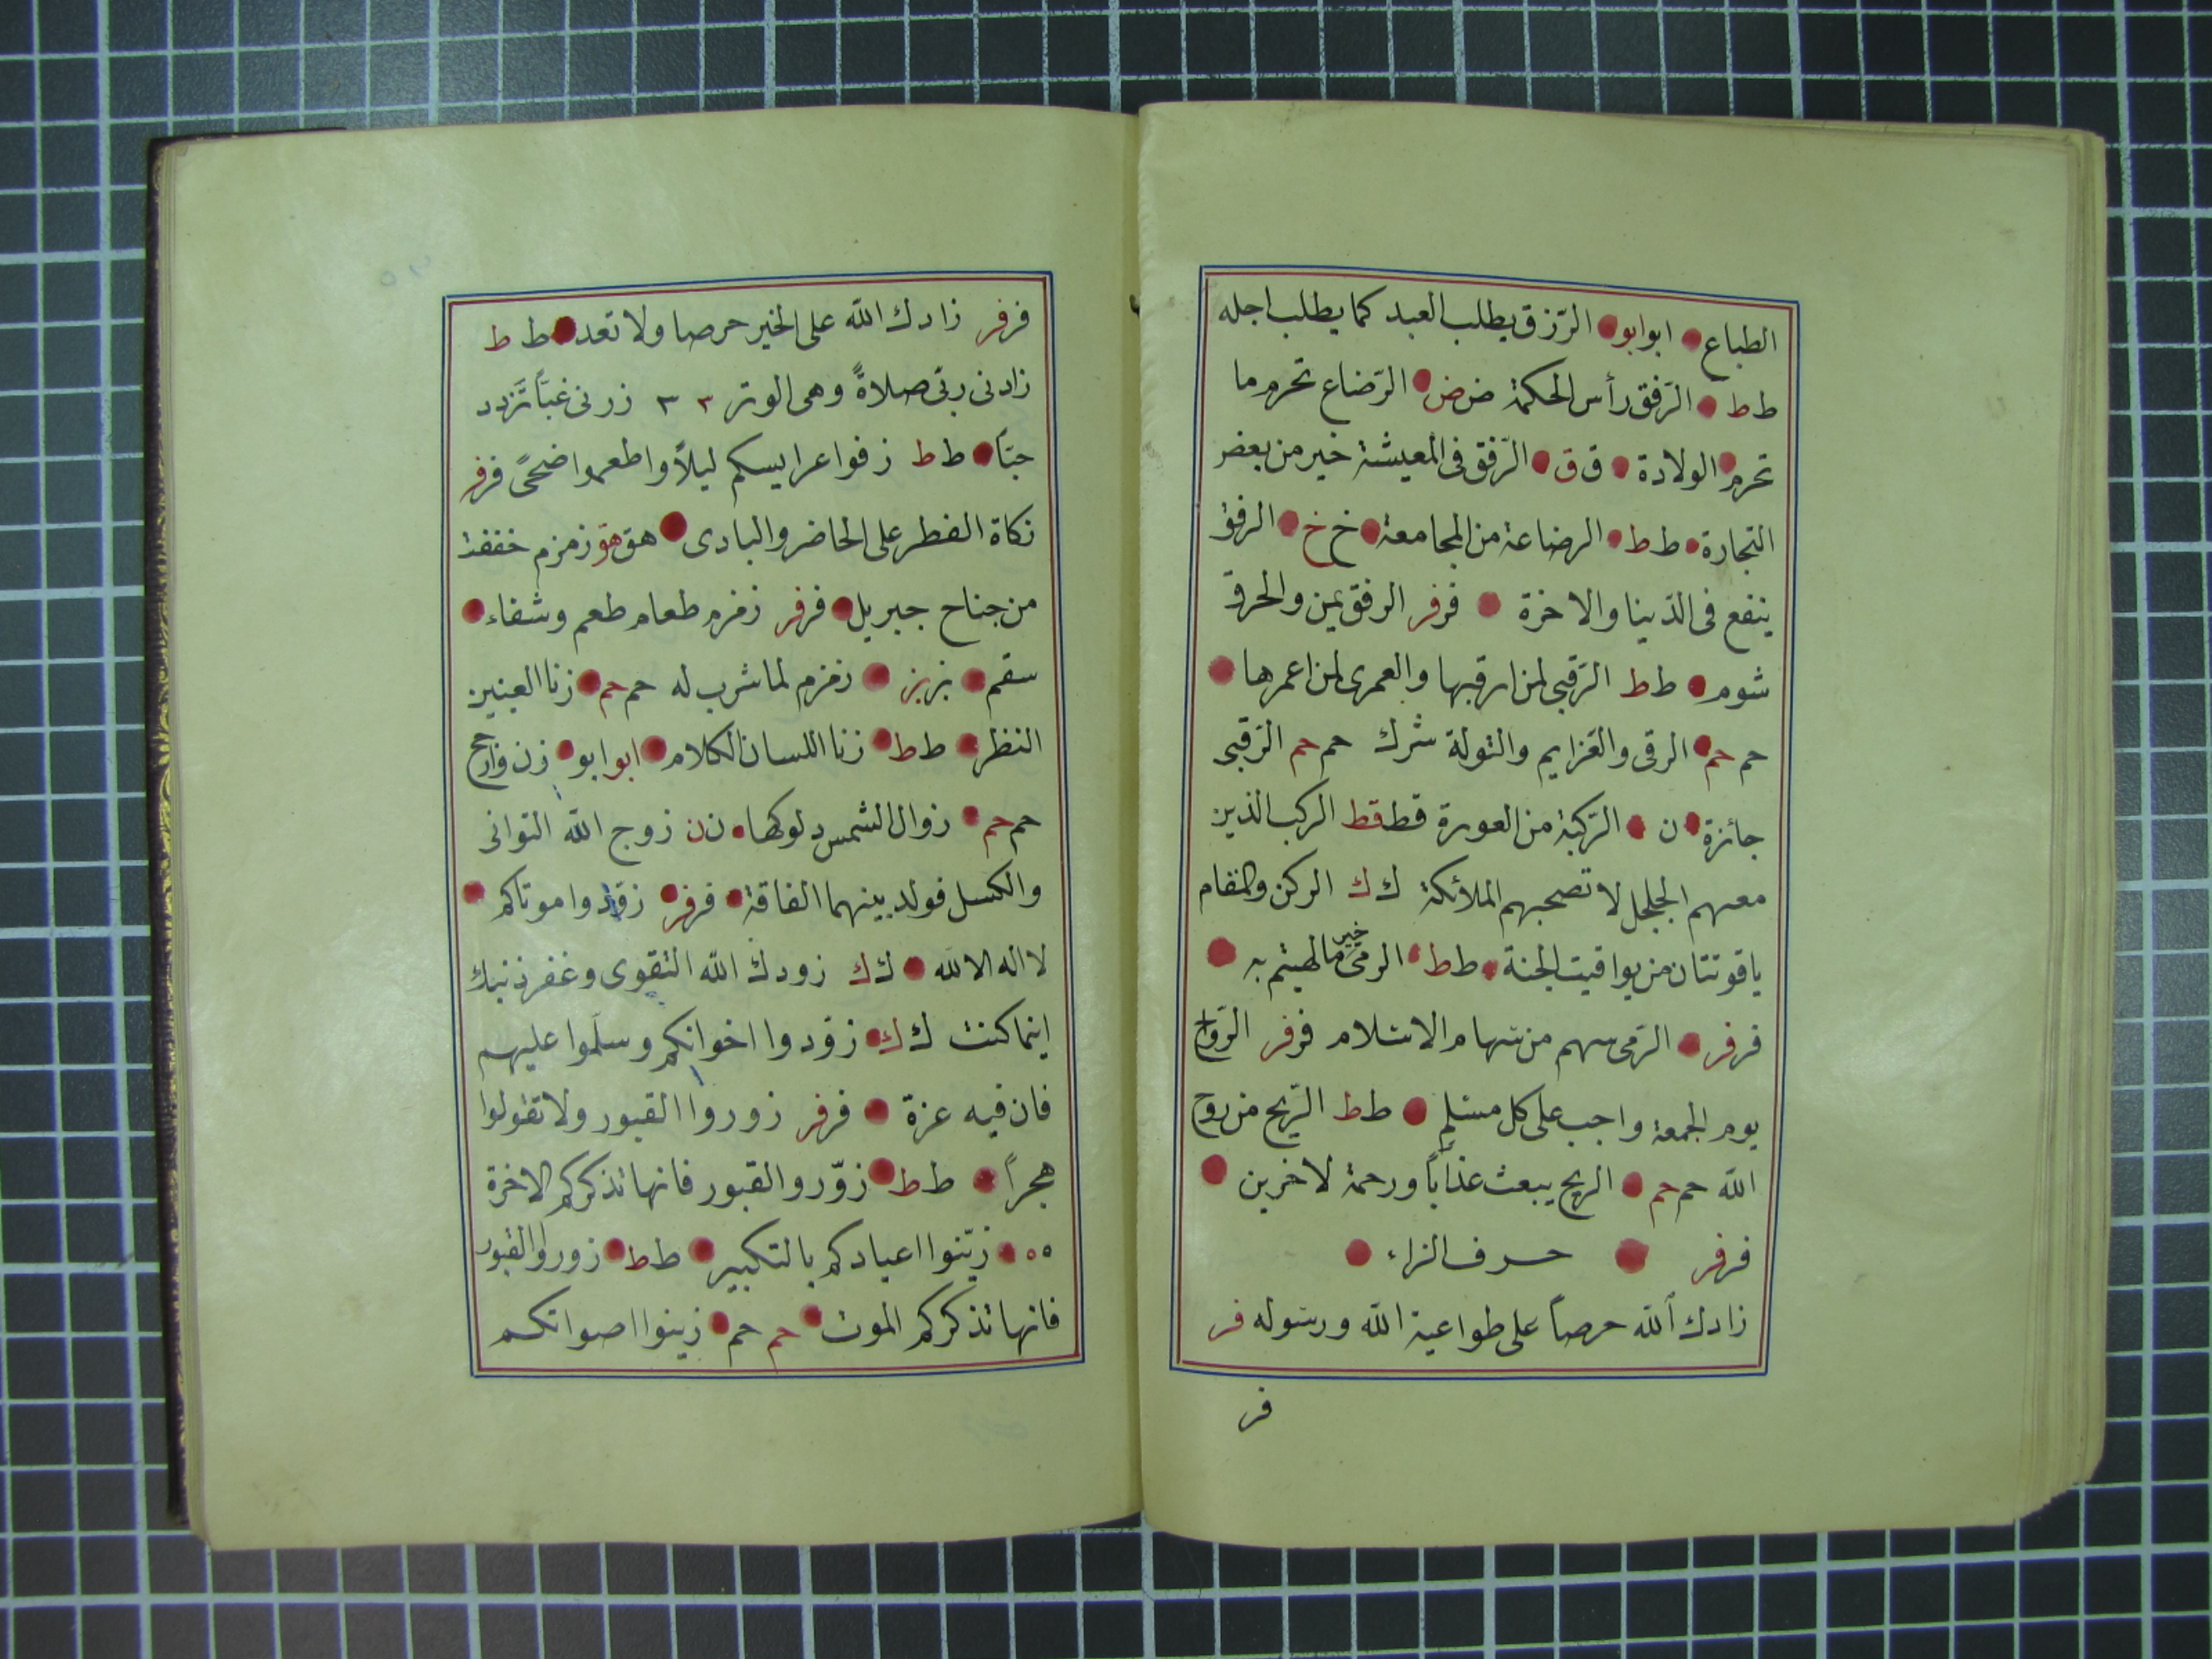 الطباع ابو ابو الرّزق يطلب العبد كما يطلب اجله
ط ط الرّفق رأس الحكمة ض ض الرّضاع تحرم ما
تحرم الولادة ق ق الرّفق فى المعيشة خير من بعض
التجارة ط ط الرضاعة من المجامعة خ خ الرفق
ينفع فى الدّينا والاخرة فر فر الرفق يمن والخرق
شوم ط ط الرّقبى لمن ارقبها والعمرى لمن اعمرها
حم حم الرقى والعّزايم والتولة شرك حم حم الرّقبى
جائزة ن الرّكبة من العورة قط قط الركب الذين
معهم الجلجل لا تصحبهم الملائكة ك ك الركن والمقام
ياقوتتان من يواقيت الجنة ط ط الرمى خير ما لهيتم به
فر فر الرّمى سهم من سهام الاسلام فر فر الرّواح
يوم الجمعة واجب على كل مسلم ط ط الرّيح من روح
الله حم حم الريح يبعث عذاباً ورحمة لاخرين
فر فر حرف الزاء
زادك الله حرصاً على طواعية الله ورسوله فر
فر
فر فر زادك الله على الخير حرصا ولا تعد ط ط
زادنى ربّى صلاةً وهى الوتر ٣ ٣ زرنى غبّاً تزدد
حبّاً ط ط زفوا عرايسكم ليلاً واطعموا ضحىً فر فر
زكاة الفطر على الحاضر والبادى هق هق زمزم خففة
من جناح جبريل فر فر زمزم طعام طعم وشفاء
سقم بز بز زمزم لما شرب له حم حم زنا العينين
النظر ط ط زنا اللسان الكلام ابو ابو زن وارجح
حم حم زوال الشمس دلوكها ن ن زوج الله التوانى
والكسل فولد بينهما الفاقة فر فر زوّدوا موتاكم
لا اله الا الله ك ك زودك الله التقوى وغفر ذنبك
اينما كنت ك ك زوّدوا اخوانكم وسلّموا عليهم
فان فيه عزة فر فر زوروا القبور ولا تقولوا
هجراً ط ط زوّروا القبور فانها تذكركم الاخرة
ه ه زيّنوا اعيادكم بالتكبير ط ط زوروا القبور
فانها تذكركم الموت حم حم زينوا اصواتكم